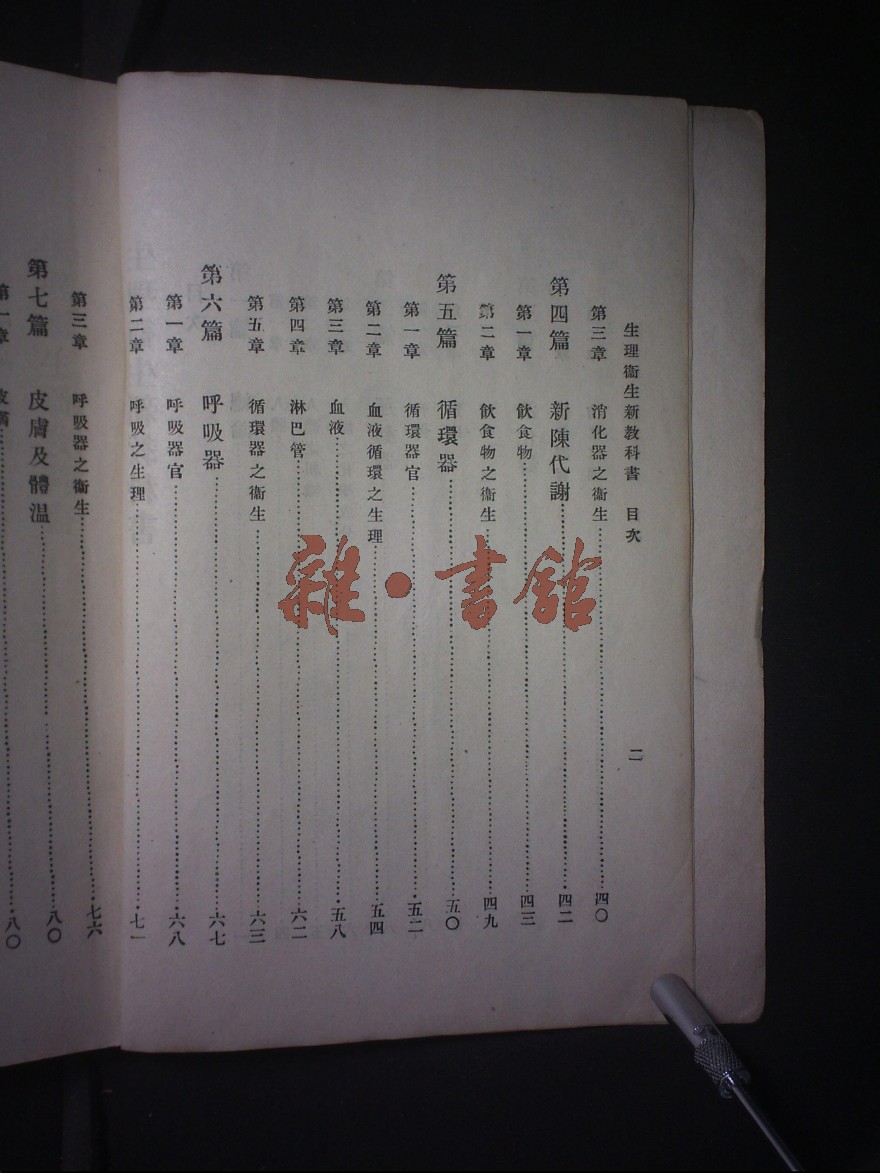 生理衞生新敎科書 目次 二
第三章 消化器之衞生 四〇
第四篇 新陳代謝 四二
第一章 飮食物 四三
第二章 飮食物之衞生 四九
第五篇 循環器 五〇
第一章 循環器官 五二
第二章 血液循環之生理 五四
第三章 血液 五八
第四章 淋巴管 六二
第五章 循環器之衞生 六三
第六篇 呼吸器 六七
第一章 呼吸器官 六八
第二章 呼吸之生理 七一
第三章 呼吸器之衞生 七六
第七篇 皮膚及體溫 八〇
第一章 八〇
雜·書館